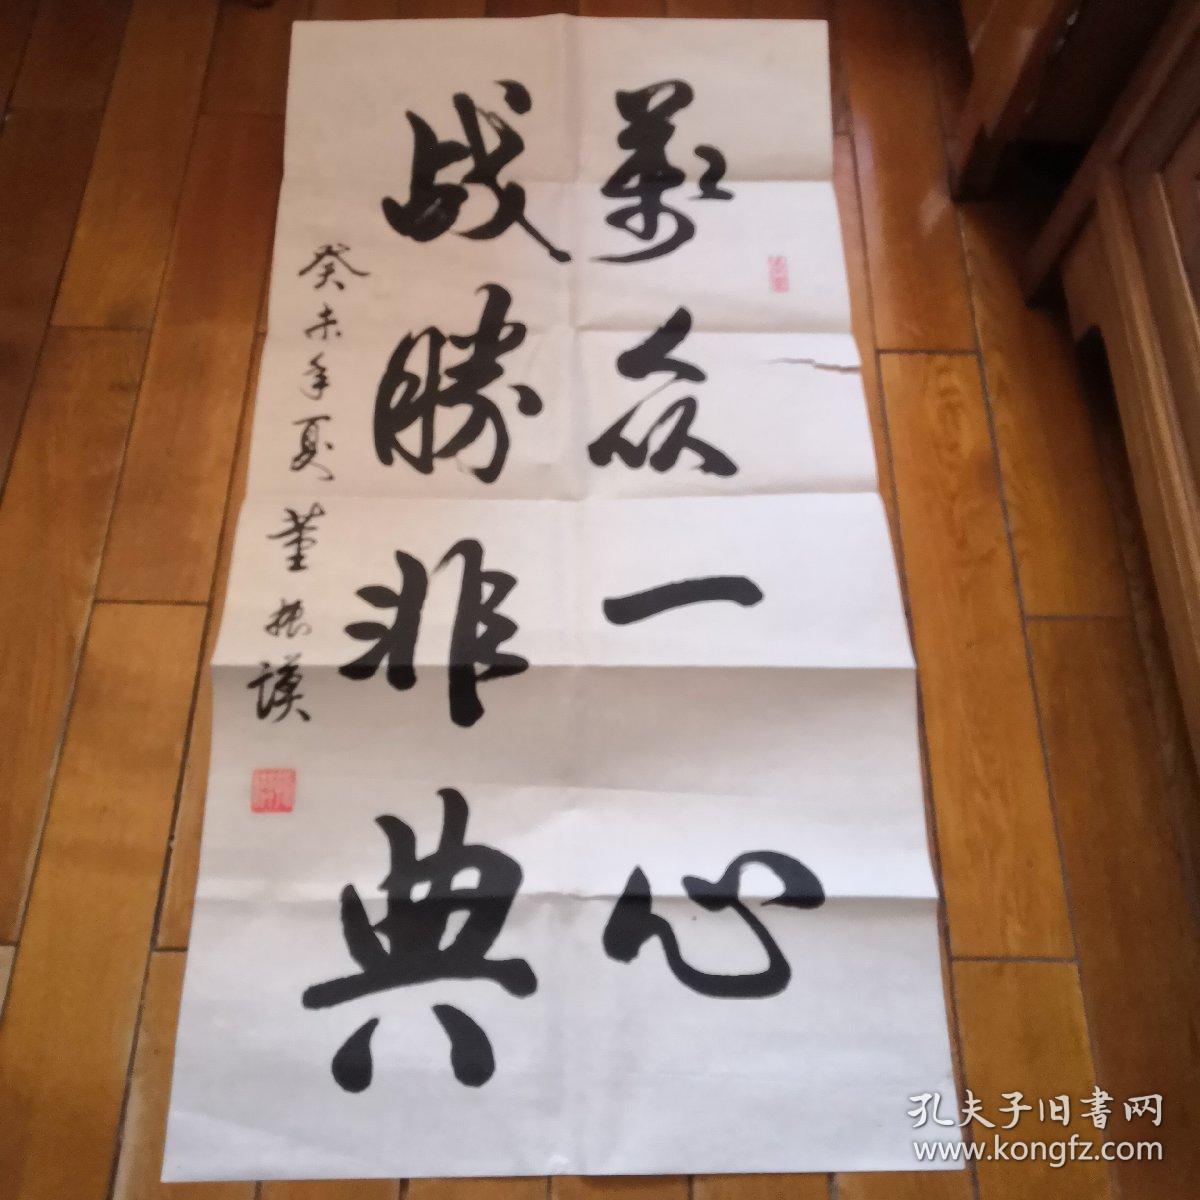 萬众一心
战勝非典
癸未年夏董振漢
孔夫子旧書网
www.kongfz.com